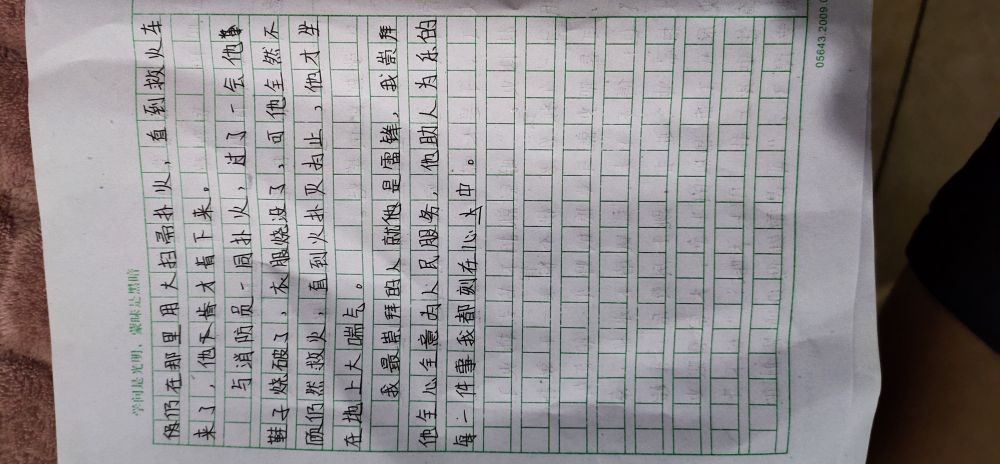 学问是光明，蒙昧是黑暗
他仍在那里用大扫帚扑火，直到救火车
来了，他才肯下来。
与消防员一同扑火，过了一会他
鞋子烧破了，衣服烧没了，可他全然不
顾仍然救火，直到火扑灭为止，他才坐
在地上大喘气。
我最崇拜的人就他是雷锋，我崇拜
他全心全意为人民服务，他助人为乐的
每一件事我都刻在心上中。
05643.2009